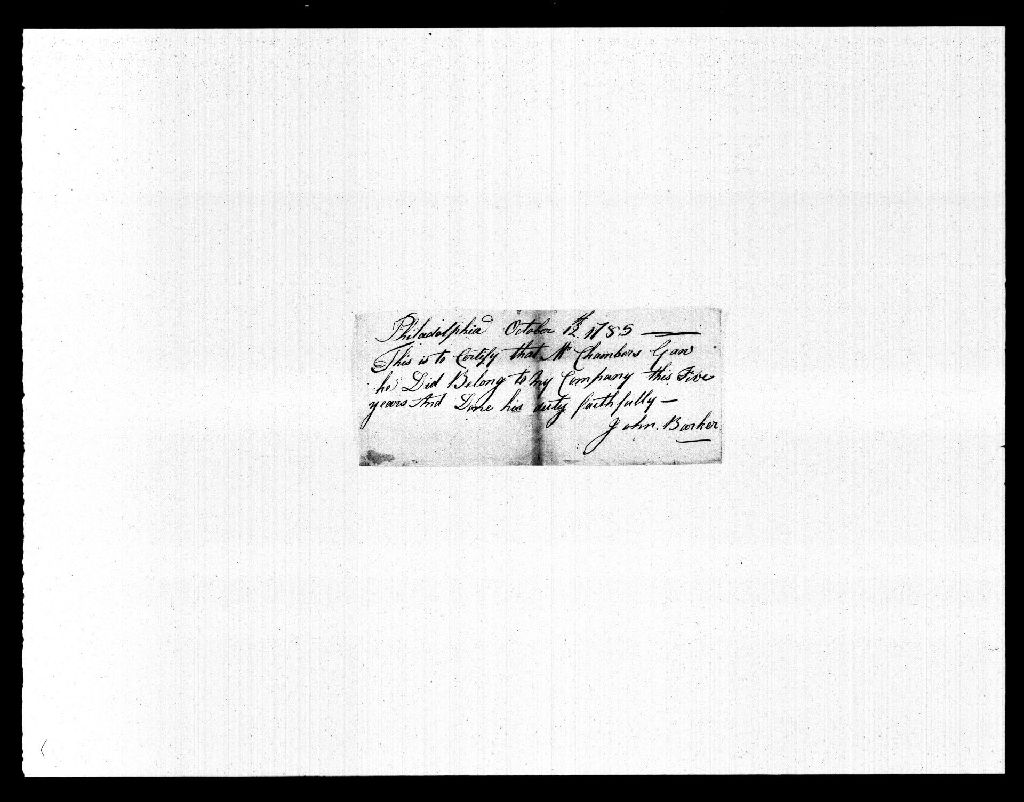 Philadelphia October 12th 1785
This is to Certify that Mr Chambers Gaw
he Did Belong to My Company this Five
years And Done his duty faithfully —
John Barker